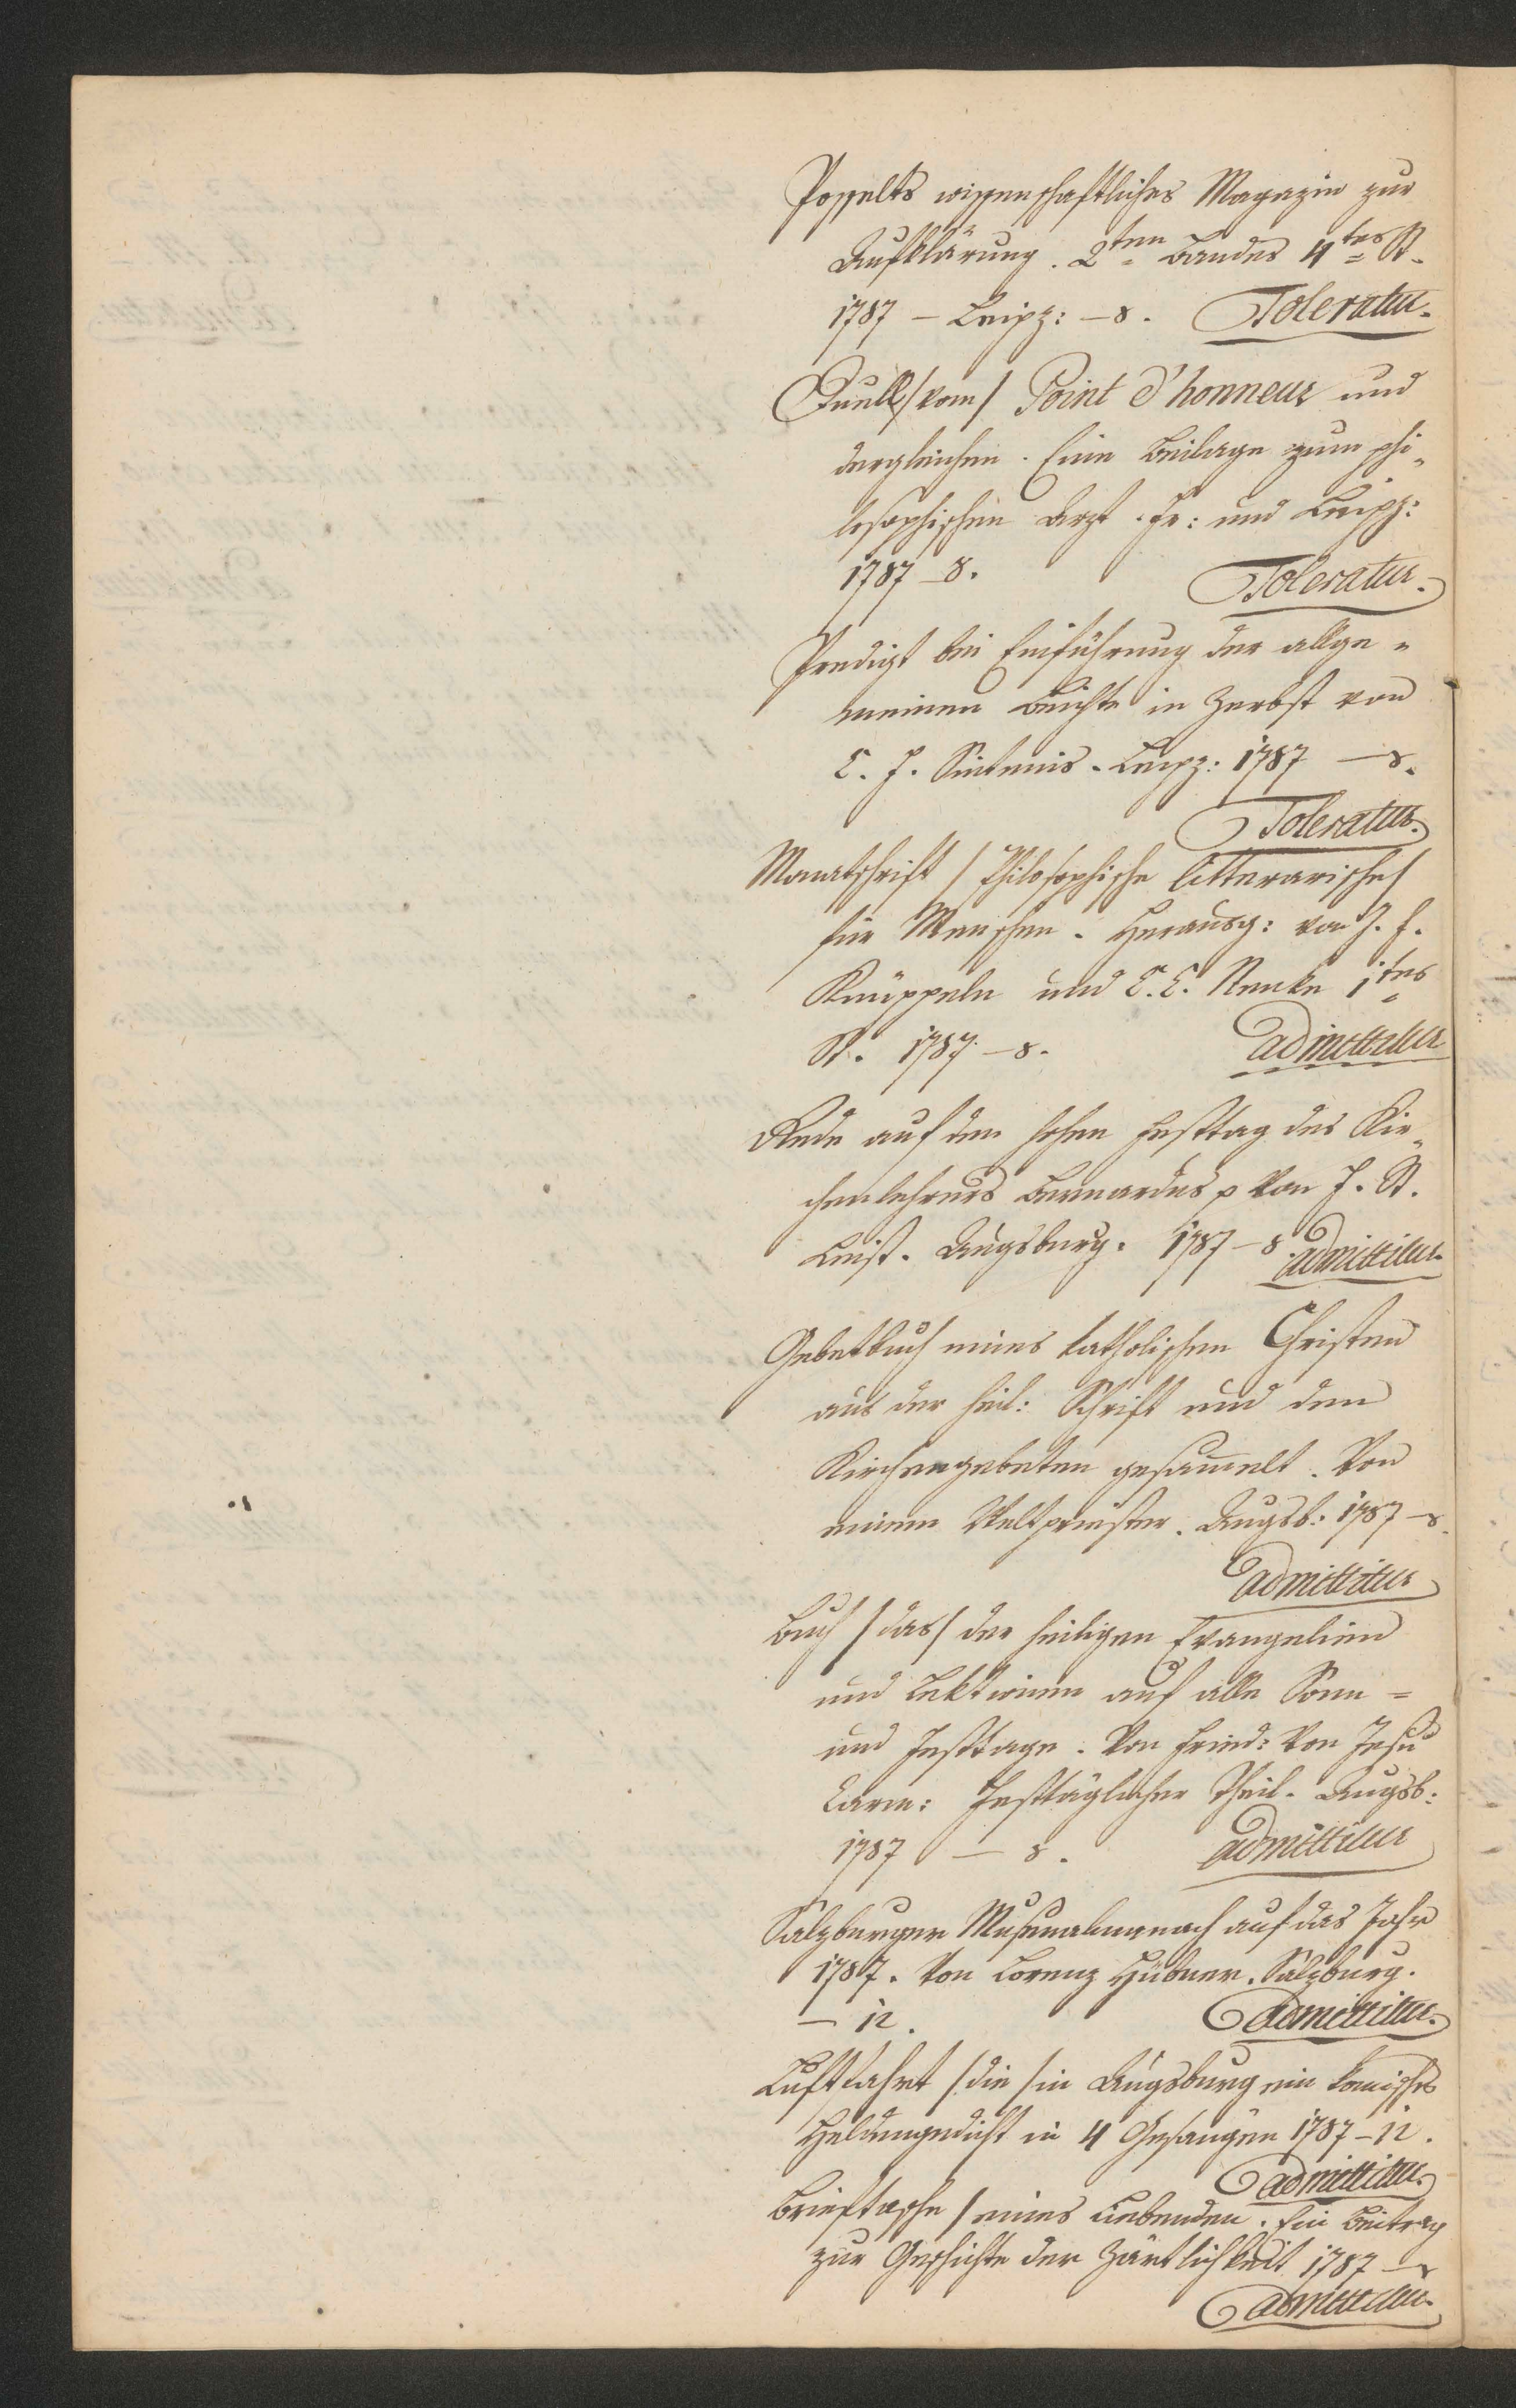 Posselts wissenschaftliches Magazin zur
Aufklärung. 2ten Bandes 4tes St.
1787 – Leipz: – 8. Toleratur.
Duell /vom/ Point d'honneur und
dergleichen. Eine Beilage zum phi„
losophischen Arzt. Fr: und Leipz:
1787 – 8. Toleratur.
Predigt bei Einführung der allge„
meinen Beichte in Zerbst von
C. F. Sintenis. Leipz: 1787 – 8.
Toleratur.
Monatschrift /Philosophische litterarische/
für Menschen. Herausg: von J. F.
Knüppeln und C. C. Nenke 1tes
St. 1787 – 8. admittitur
Rede auf den hohen Festtag des Kir„
chenlehrers Bernardus p von J. St.
Leist. Augsburg. 1787 – 8 admittitur.
Gebetbuch eines katholischen Christen
aus der heil: Schrift und den
Kirchengebeten gesam̅elt. Von
einem Weltpriester. Augsb: 1787 – 8.
admittitur
Buch /das/ der heiligen Evangelien
und Lektionen auf alle Sonn =
und Festtage. Von Fried: von Jesu
Carm: Festtäglicher Theil. Augsb:
1787 – 8. admittitur
Salzburger Musenalmanach auf das Jahr
1787. Von Lorenz Hübner. Salzburg.
– 12. admittitur.
Luftfahrt /die/ in Augsburg ein komisches
Heldengedicht in 4 Gesängen 1787 – 12.
admittitur.
Brieftasche /eines Liebenden. Ein Beitrag
zur Geschichte der Zärtlichkeit 1787 – 8
admittitur.